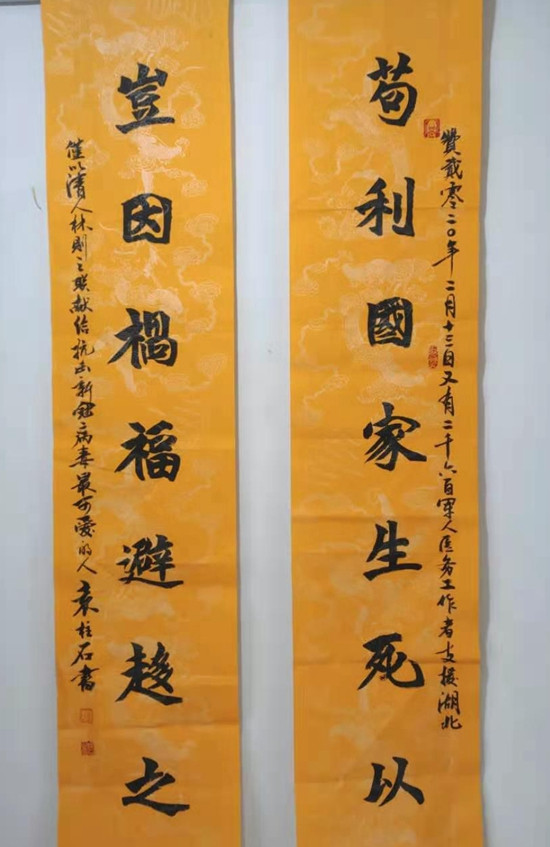 贊貳零二〇年二月十三日又有二千六百軍人医务工作者支援湖北
苟利國家生死以
豈因禍福避趍之
僅以清人林則之联献给抗击新冠病毒最可愛的人 袁柱石書